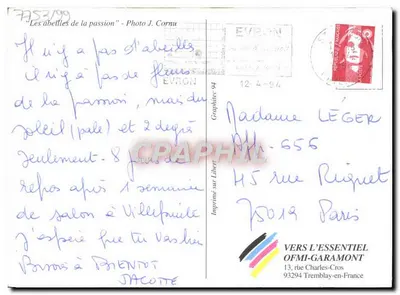 7753/99
"Les abeilles de la passion" - Photo J. Cornu
Il n'y a pas d'abeilles
il n'y a pas de fleurs
de la passion, mais du
soleil (pale) et 2 degrés
seulement - 8 jours de
repos après 1 semaine
de salon à Villepinte
J'espère que tu vas bien
Bisous à BIENTOT
JACOTTE
EVRON
EVRON
12-4-94
Graphitec 94
Imprimé sur Libert
CARTHAPHILE
Madame LÉGER
Aff. 656
45 rue Riquet
75019 Paris
VERS L'ESSENTIEL
OFMI-GARAMONT
13, rue Charles-Cros
93294 Tremblay-en-France